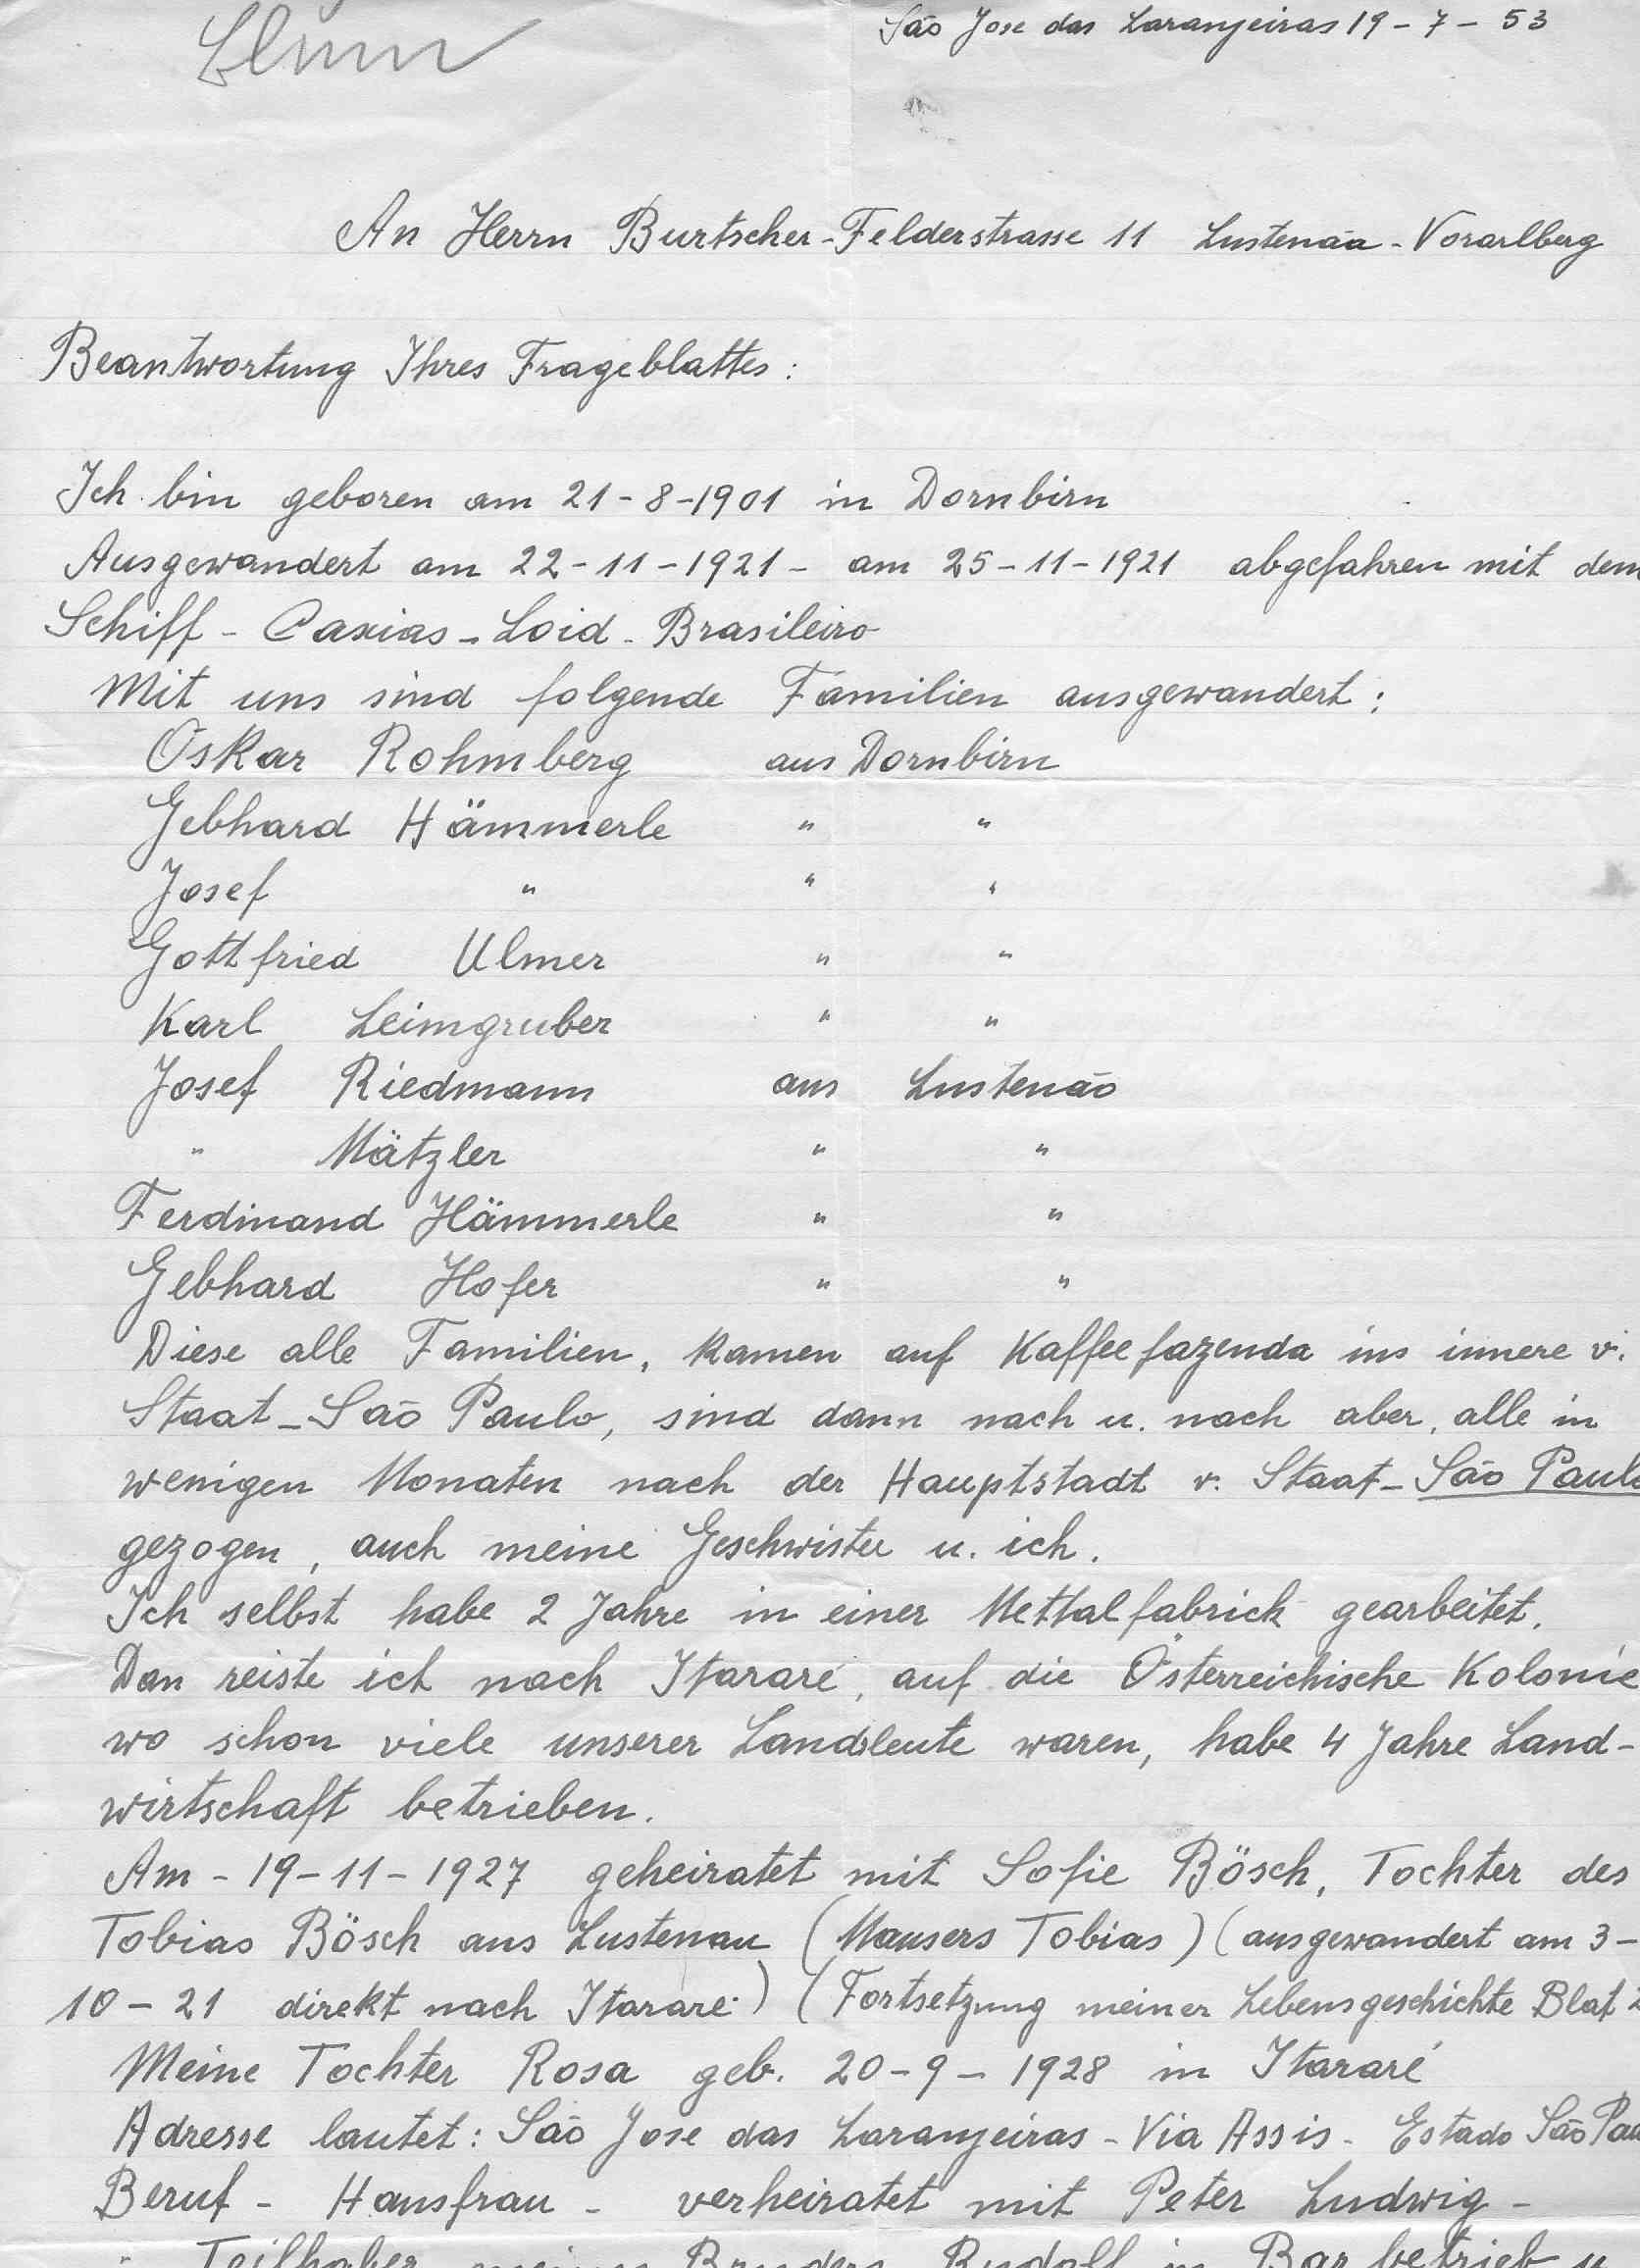 São Jose das Laranjeiras 19-7-53
An Herrn Burtscher-Felderstrasse 11 Lustenãu-Vorarlberg
Beantwortung Ihres Frageblattes:
Ich bin geboren am 21-8-1901 in Dornbirn
Ausgewandert am 22-11-1921- am 25-11-1921 abgefahren mit dem
Schiff - Caxias - Loid - Brasileiro
Mit uns sind folgende Familien ausgewandert:
Oskar Rohmberg aus Dornbirn
Gebhard Hämmerle " "
Josef " " "
Gottfried Ulmer " "
Karl Leimgruber " "
Josef Riedmann aus Lustenão
" Mätzler " "
Ferdinand Hämmerle " "
Gebhard Hofer " "
Diese alle Familien, kamen auf Kaffeefazenda ins innere v.
Staat - São Paulo, sind dann nach u. nach aber, alle in
wenigen Monaten nach der Hauptstadt v. Staat - São Paulo
gezogen, auch meine Geschwister u. ich.
Ich selbst habe 2 Jahre in einer Mettalfabrick gearbeitet.
Dan reiste ich nach Itararé, auf die Österreichische Kolonie
wo schon viele unserer Landsleute waren, habe 4 Jahre Land-
wirtschaft betrieben.
Am - 19-11-1927 geheiratet mit Sofie Bösch, Tochter des
Tobias Bösch aus Lustenau (Mausers Tobias) (ausgewandert am 3-
10-21 direkt nach Itararé) (Fortsetzung meiner Lebensgeschichte Blat 2
Meine Tochter Rosa geb. 20-9-1928 in Itararé
Adresse lautet: São Jose das Laranjeiras - Via Assis - Estado São Pau
Beruf - Hausfrau - verheiratet mit Peter Ludwig -
" Teilhaber meines Bruders Rudolf in Bar betrieb u